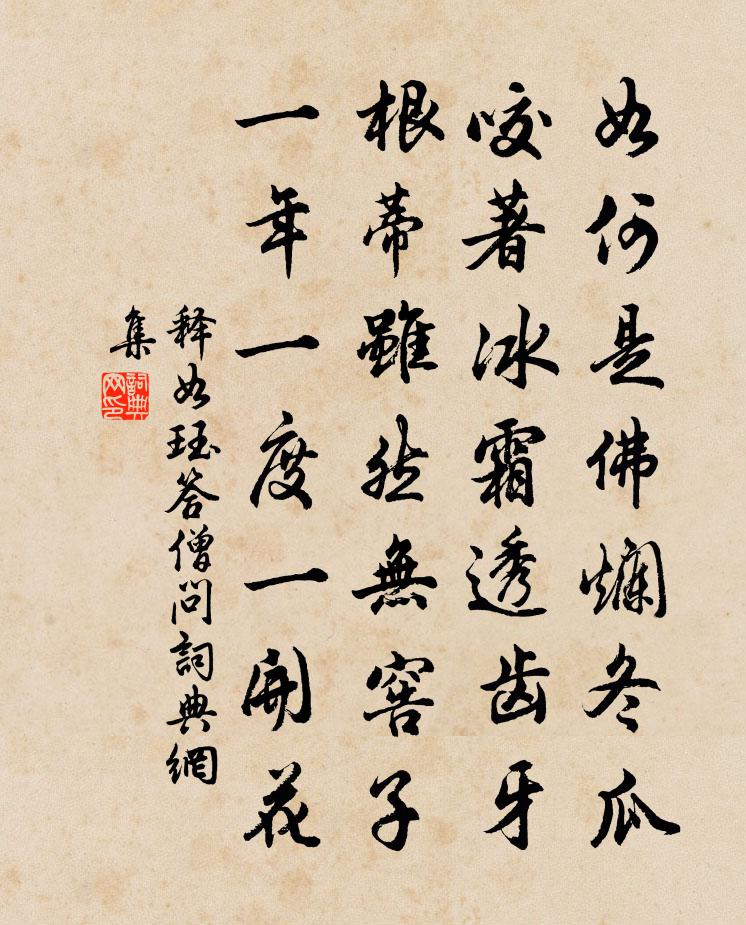 如何是佛爛冬瓜
咬著冰霜透齿牙
根蒂雖然無窖子
一年一度一開花
释如珏答僧問詞典網
集
詞典
网印